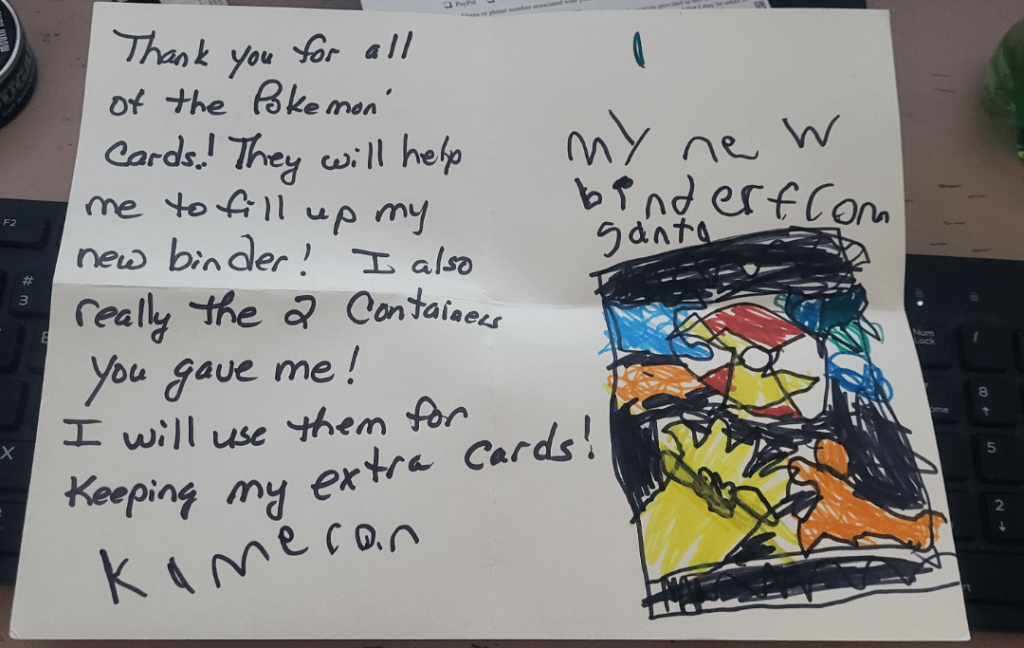 PayPal
Thank you for all
of the Pokemon
Cards! They will help
me to fill up my
new binder! I also
really the 2 Containers
you gave me!
I will use them for
Keeping my extra cards!
Kameron
my new
binder from
santa
F2
#
3
E
X
Num
Lock
/
8
5
2